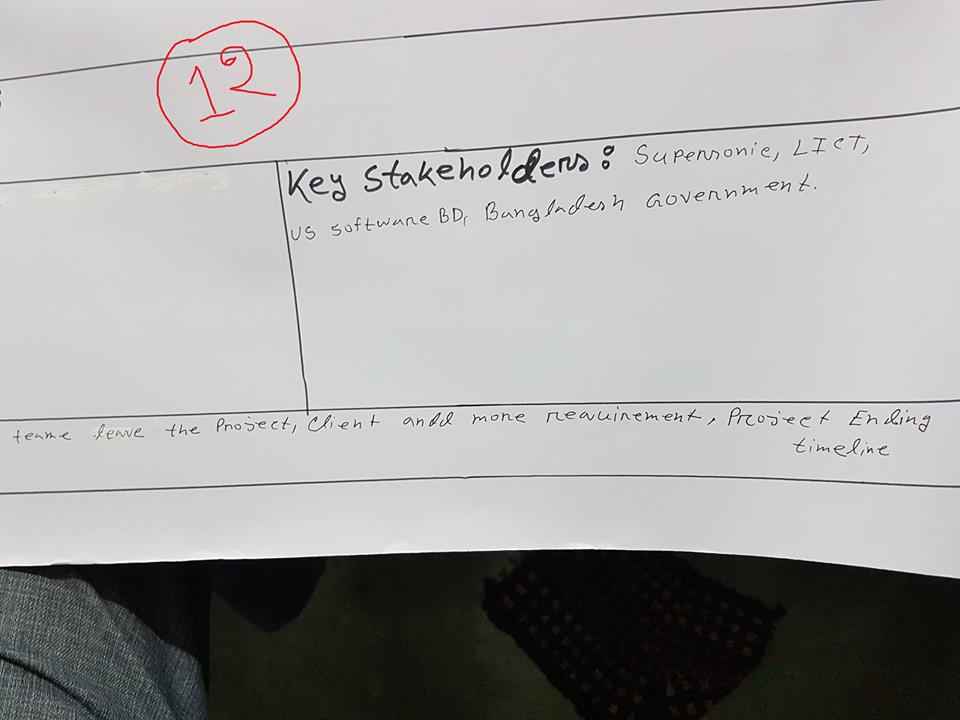 12
Key Stakeholders: Supersonic, LICT,
US Software BD, Bangladesh Government.
teame leave the Project, Client andd more reauirement, Project Ending
timeline